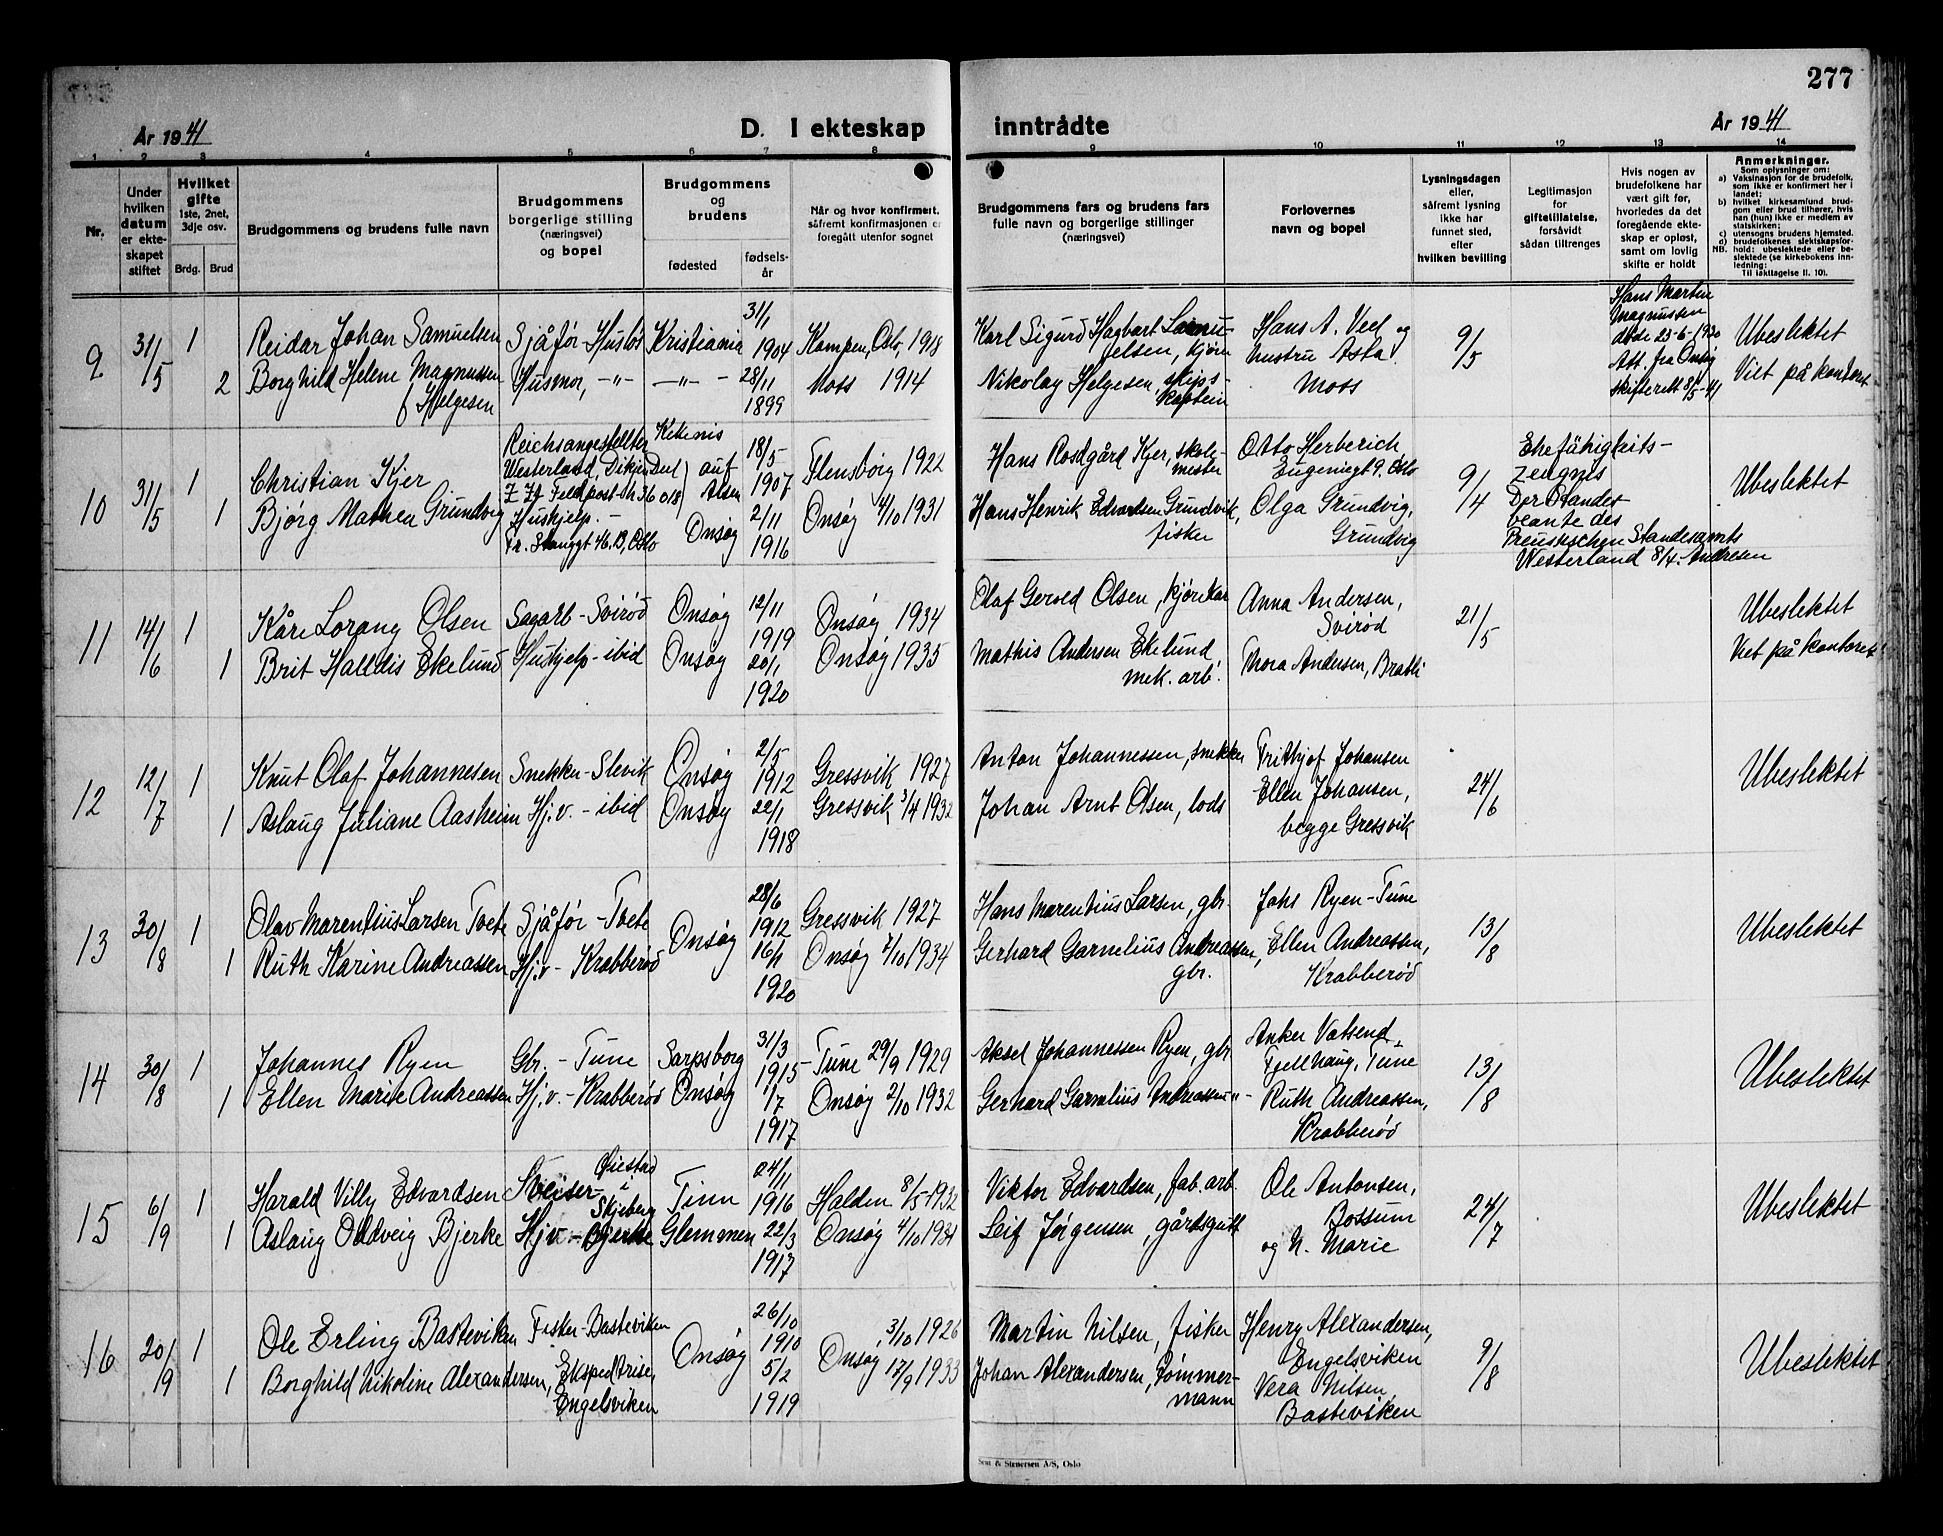 277
År 1941
D. I ekteskap inntrådte
År 1941
1 2 3 4 5 6 7 8 9 10 11 12 13 14
Nr.
Under hvilken datum er ekteskapet stiftet
Hvilket gifte 1ste, 2net, 3dje osv.
Brdg. Brud
Brudgommens og brudens fulle navn
Brudgommens borgerlige stilling (næringsvei) og bopel
Brudgommens og brudens
fødested
fødselsår
Når og hvor konfirmert, såfremt konfirmasjonen er foregått utenfor sognet
Brudgommens fars og brudens fars fulle navn og borgerlige stillinger (næringsvei)
Forlovernes navn og bopel
Lysningsdagen eller, såfremt lysning ikke har funnet sted, efter hvilken bevilling
Legitimasjon for giftetillatelse, forsåvidt sådan tiltrenges
Hvis nogen av brudefolkene har vært gift før, hvorledes da det foregående ekteskap er opløst, samt om lovlig skifte er holdt
Anmerkninger.
Som oplysninger om:
a) Vaksinasjon for de brudefolk, som ikke er konfirmert her i landet:
b) hvilket kirkesamfund brudgom eller brud tilhører, hvis han (hun) ikke er medlem av statskirken:
c) utensogns brudens hjemsted.
d) brudefolkenes slektskapsforhold: ubeslektede eller beslektede (se kirkebokens innledning:
NB.
Til iakttagelse II. 10).
9 31/5 1 Reidar Johan Samuelsen Sjåfør-Husbø Kristiania 31/1 1904 Kampen, Oslo, 1918 Karl Sigurd Hagbart Samuelsen, kjørek Hans A. Veel og 9/5 Hans Martin Magnussen døde 23-6-1930 Ubeslektet
2 Borghild Helene Magnussen f. Helgesen Husmor, -"- -"- 28/11 1899 Moss 1914 Nikolay Helgesen, skipskaptein hustru Asta Moss Att. fra Onsøy skifterett 8/5-41 Viet på kontoret
10 31/5 1 Christian Kjer Reichsangestellter Westerland, Z Zt Feldpost 36018 Kekenis auf Alsen 18/5 1907 Flensborg 1922 Hans Rosdgård Kjer, skolemester Otto Herberich, Eugeniegt 9, Oslo 9/4 Ehefähigkeits- Der Standes des Standesamts Westerland 8/4. Andresen Ubeslektet
1 Bjørg Mathea Grundvig Huskjelp. - 46.B, Oslo Onsøy 2/11 1916 Onsøy 4/10 1931 Hans Henrik Edvardsen Grundvik, fisker Olga Grundvig, Grundvig
11 14/6 1 Kåre Lorang Olsen Sagarb-Svirød Onsøy 12/11 1919 Onsøy 1934 Olaf Gerold Olsen, kjørekar Anna Andersen, Svirød 21/5 Ubeslektet
1 Brit Halldis Ekelund Huskjelp-ibid Onsøy 20/1 1920 Onsøy 1935 Mathis Andersen Ekelund mek. arb. Thora Andersen, Bratli Viet på kontoret
12 12/7 1 Knut Olaf Johannesen Snekker-Slevik Onsøy 2/5 1912 Gressvik 1927 Anton Johannessen, snekker Frithjof Johansen 24/6 Ubeslektet
1 Aslaug Juliane Aasheim Hj.v.-ibid Onsøy 22/1 1918 Gressvik 3/4 1932 Johan Arnt Olsen, lods Ellen Johansen, begge Gressvik
13 30/8 1 Olav Marentius Larsen Tvete Sjåfør-Tvete Onsøy 28/6 1912 Gressvik 1927 Hans Marentius Larsen, gbr. Johs Ryen-Tune 13/8 Ubeslektet
1 Ruth Karine Andreassen Hj.v-Krabberød 16/1 1920 Onsøy 7/10 1934 Gerhard Garnelius Andreassen, gbr. Ellen Andreassen, Krabberød
14 30/8 1 Johannes Ryen Gbr.-Tune Sarpsborg 31/3 1915 Tune 29/9 1929 Aksel Johannessen Ryen, gbr Anker Vatsend, Fjellhaug, Tune 13/8 Ubeslektet
1 Ellen Marie Andreassen Hj.v.-Krabberød Onsøy 1/7 1917 Onsøy 2/10 1932 Gerhard Garnelius Andreassen -"- Ruth Andreassen, Krabberød
15 6/9 1 Harald Villy Edvardsen Sveiser-Øiestad i Skjeberg Tinn 24/11 1916 Halden 8/5-1932 Viktor Edvardsen, fab. arb. Ole Antonsen, Bossum 24/7 Ubeslektet
1 Aslaug Oddveig Bjerke Hjv.-Bjerke Glemmen 22/3 1917 Onsøy 4/10 1931 Leif Jørgensen, gårdsgutt og N. Marie
16 20/9 1 Ole Erling Basteviken Fisker-Basteviken Onsøy 26/10 1910 Onsøy 3/10 1926 Martin Nilsen, fisker Henry Alexandersen, Engelsviken 9/8 Ubeslektet
1 Borghild Nikoline Alexandersen, Ekspeditrise, Engelsviken 5/2 1919 17/9 1933 Johan Alexandersen, Tømmermann Vera Nilsen, Basteviken
Sem & Stenersen A/S, Oslo